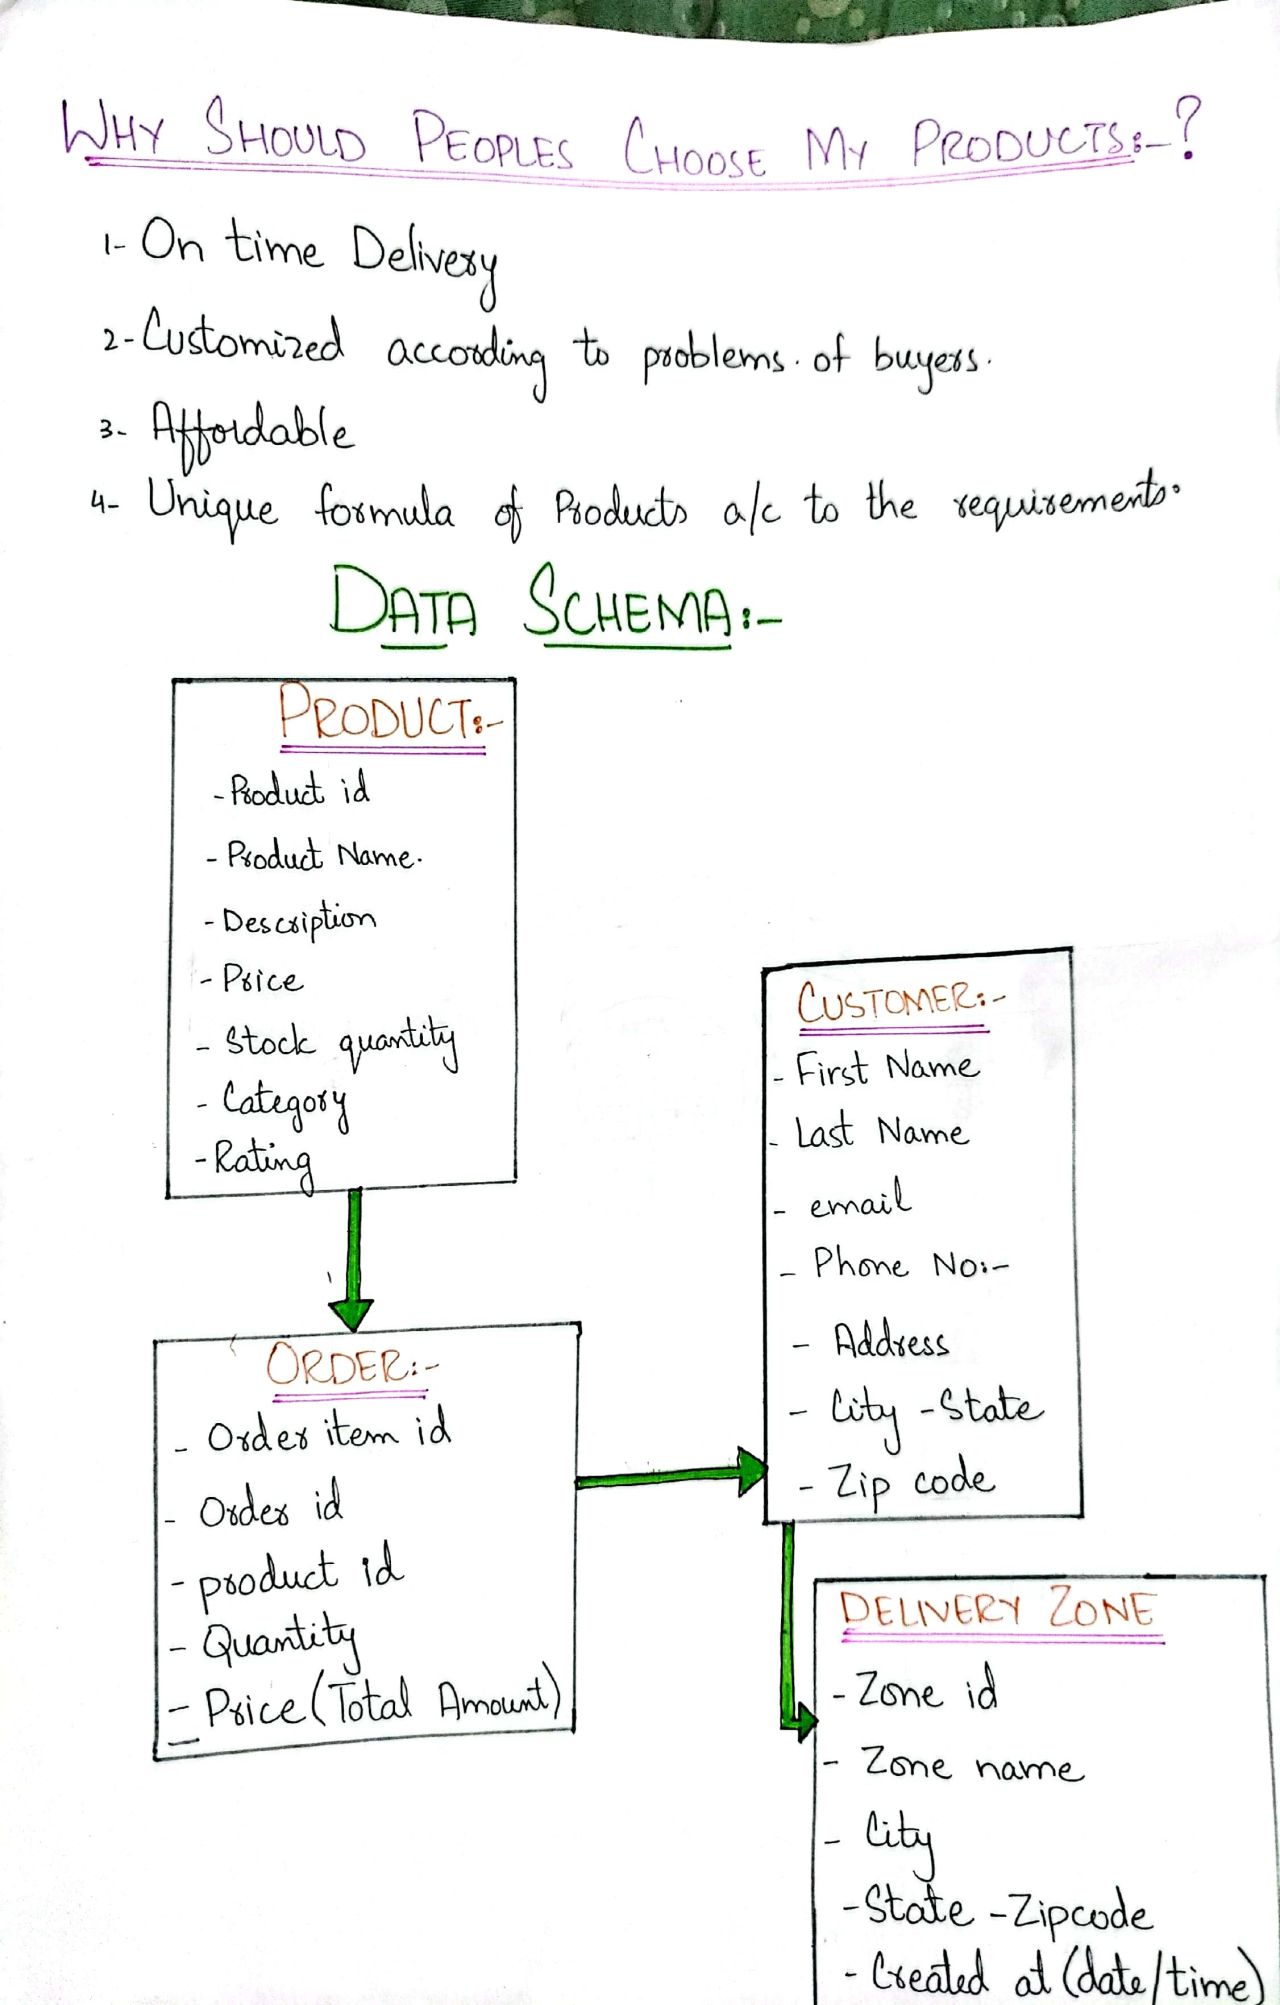 WHY SHOULD PEOPLES CHOOSE MY PRODUCTS:-?
1- On time Delivery
2- Customized according to problems. of buyers.
3- Affordable
4- Unique formula of Products a/c to the requirements.
DATA SCHEMA:-
PRODUCT:-
- Product id
- Product Name.
- Description
- Price
- Stock quantity
- Category
- Rating
ORDER:-
- Order item id
- Order id
- product id
- Quantity
- Price (Total Amount)
CUSTOMER:-
- First Name
- Last Name
- email
- Phone No:-
- Address
- City - State
- Zip code
DELIVERY ZONE
- Zone id
- Zone name
- City
- State - Zipcode
- Created at (date/time)